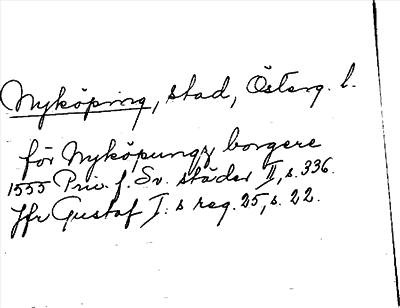 Nyköping, stad, Österg. l.
för Nyköpungz borgere
1555 Priv. f. Sv. städer II, s. 336.
Jfr Gustaf I:s reg. 25, s. 22.